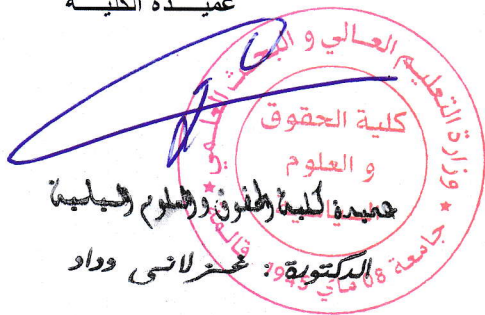 عميـدة الكليـة
وزارة التعليم العالي و البحث العلمي
كلية الحقوق
و العلوم
السياسية
جامعة 08 ماي 1945 قالمة
عميدة كلية الحقوق والعلوم السياسية
الدكتورة : غزلاني وداد